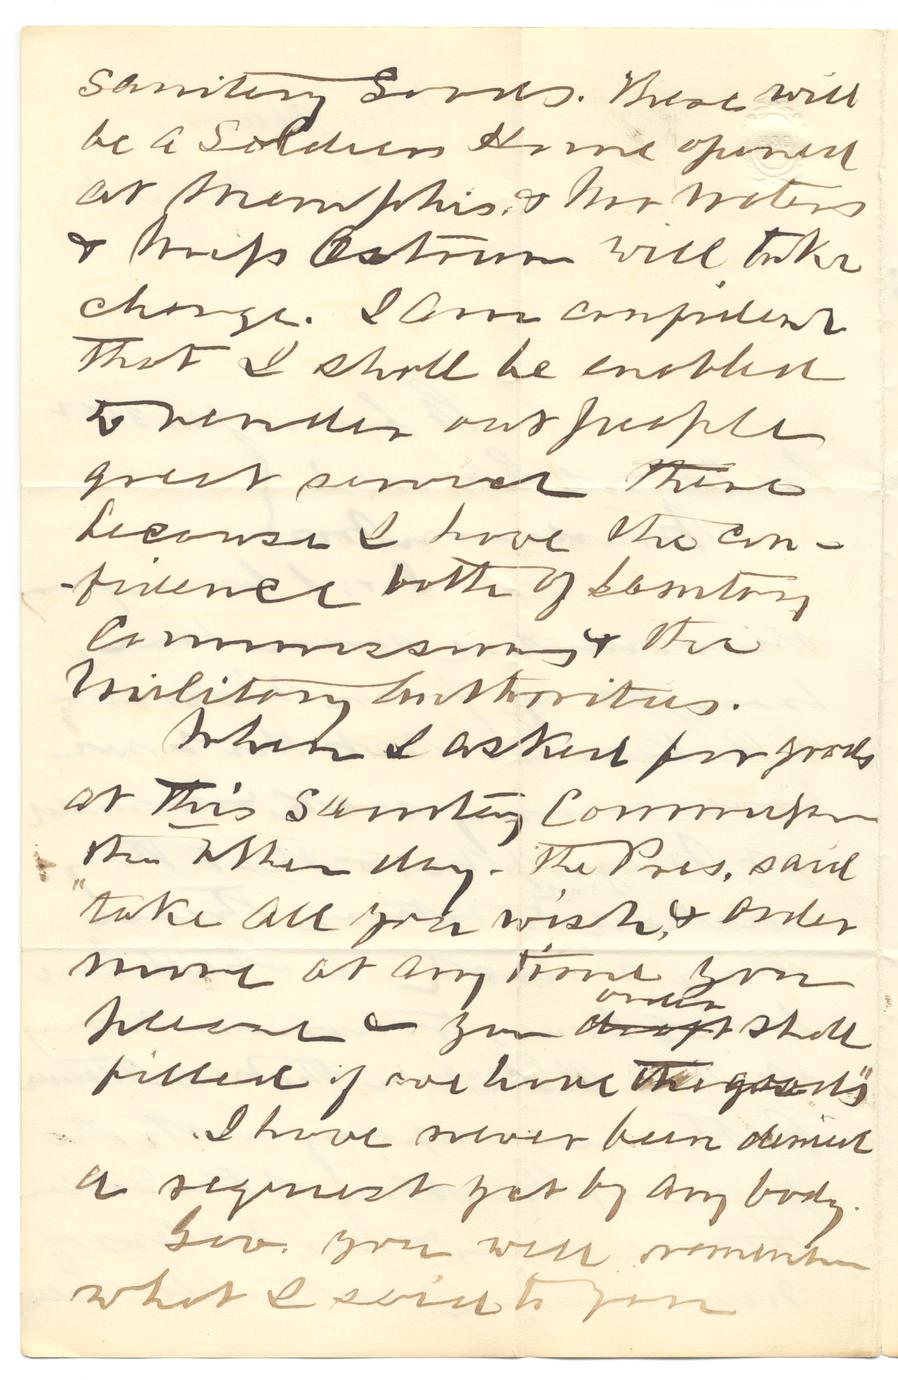 Sanitary Goods. There will
be a Soldiers Home opened
at Memphis. & Mrs Waters
& Miss Ostrum will take
charge. I am confident
that I shall be enabled
to render our people
great service there
because I have the con-
-fidence both of Sanitary
Commissiong & the
Military Authorities.
When I asked for goods
at this Sanitary Commission
the other day - the Pres. said
"take all you wish, & order
more at any time you
please & you draft order shall
filled if we have the goods"
I have never been denied
a request yet by any body.
Gov. you will remember
what I said to you